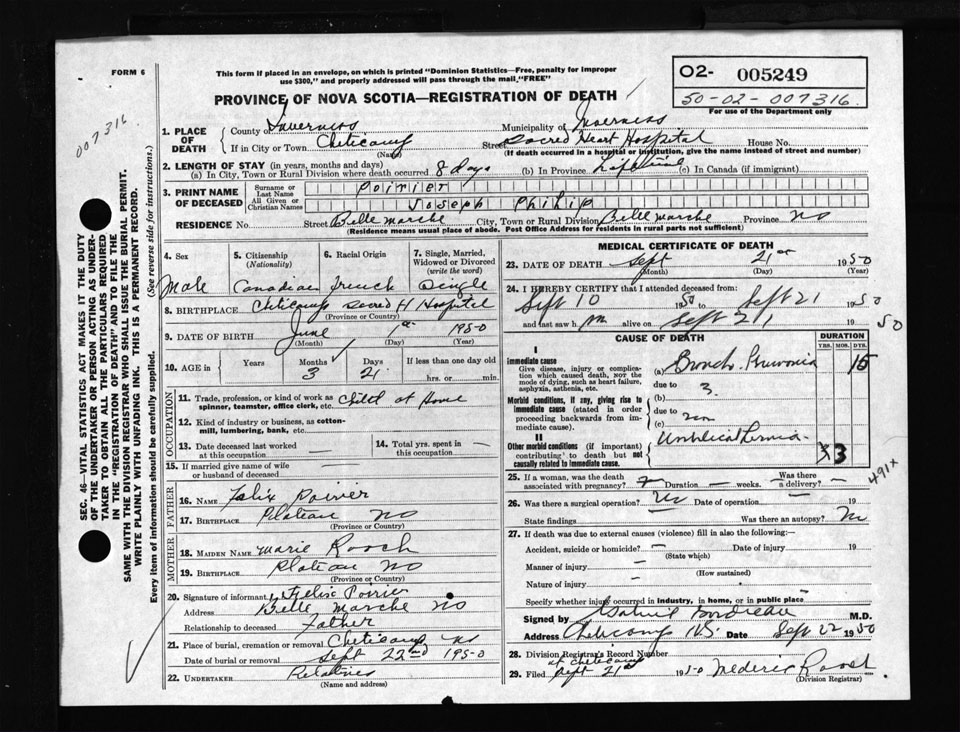 FORM 6
This form if placed in an envelope, on which is printed "Dominion Statistics—Free, penalty for improper
use $300," and properly addressed will pass through the mail, "FREE"
O2- 005249
50-02-007316
For use of the Department only
007316
PROVINCE OF NOVA SCOTIA—REGISTRATION OF DEATH
1. PLACE OF DEATH
County of Inverness Municipality of Inverness
If in City or Town Cheticamp Street Sacred Heart Hospital House No.
(Name) (If death occurred in a hospital or institution, give the name instead of street and number)
2. LENGTH OF STAY (in years, months and days)
(a) In City, Town or Rural Division where death occurred 8 days (b) In Province Lifetime (c) In Canada (if immigrant)
3. PRINT NAME OF DECEASED
Surname or Last Name Poirier
All Given or Christian Names Joseph Philip
RESIDENCE No. Street Belle Marche City, Town or Rural Division Belle Marche Province NS
(Residence means usual place of abode. Post Office Address for residents in rural parts not sufficient)
4. Sex
Male
5. Citizenship (Nationality)
Canadian
6. Racial Origin
French
7. Single, Married, Widowed or Divorced (write the word)
Single
8. BIRTHPLACE Cheticamp Sacred H Hospital
(Province or Country)
9. DATE OF BIRTH June 1st 1950
(Month) (Day) (Year)
10. AGE in Years Months Days If less than one day old
3 21 hrs. or min.
OCCUPATION
11. Trade, profession, or kind of work as
spinner, teamster, office clerk, etc. Child at Home
12. Kind of industry or business, as cotton-
mill, lumbering, bank, etc. —
13. Date deceased last worked
at this occupation —
14. Total yrs. spent in
this occupation —
15. If married give name of wife
or husband of deceased —
FATHER
16. NAME Felix Poirier
17. BIRTHPLACE Plateau NS
(Province or Country)
MOTHER
18. MAIDEN NAME Marie Roach
19. BIRTHPLACE Plateau NS
(Province or Country)
20. Signature of informant Felix Poirier
Address Belle Marche NS
Relationship to deceased Father
21. Place of burial, cremation or removal Cheticamp NS
Date of burial or removal Sept 22nd 1950
22. UNDERTAKER Relatives
(Name and address)
MEDICAL CERTIFICATE OF DEATH
23. DATE OF DEATH Sept 21st 1950
(Month) (Day) (Year)
24. I HEREBY CERTIFY that I attended deceased from:
Sept 10 1950 to Sept 21 1950
and last saw h m alive on Sept 21 19 50
CAUSE OF DEATH
DURATION
YRS. MOS. DYS.
I
Immediate cause
Give disease, injury or complica-
tion which caused death, NOT the
mode of dying, such as heart failure,
asphyxia, asthenia, etc.
(a) 15
due to 3.
Morbid conditions, if any, giving rise to
immediate cause (stated in order
proceeding backwards from im-
mediate cause).
(b)
due to
(c)
II
Other morbid conditions (if important)
contributing to death but not
causally related to immediate cause.
Umbilical hernia 3
25. If a woman, was the death
associated with pregnancy? Duration — weeks. Was there
a delivery? —
491x
26. Was there a surgical operation? No Date of operation — 19
State findings — Was there an autopsy? No
27. If death was due to external causes (violence) fill in also the following:—
Accident, suicide or homicide? — Date of injury 19
(State which)
Manner of injury —
(How sustained)
Nature of injury —
Specify whether injury occurred in industry, in home, or in public place
Signed by Gabriel Boudreau M.D.
Address Cheticamp N.S. Date Sept 22 1950
28. Division Registrar's Record Number
at Cheticamp
29. Filed Sept 21st 1950 Mederic Roach
(Division Registrar)
SEC. 46—VITAL STATISTICS ACT MAKES IT THE DUTY
OF THE UNDERTAKER OR PERSON ACTING AS UNDER-
TAKER TO OBTAIN ALL THE PARTICULARS REQUIRED
IN THE "REGISTRATION OF DEATH" AND TO FILE THE
SAME WITH THE DIVISION REGISTRAR WHO SHALL ISSUE THE BURIAL PERMIT.
WRITE PLAINLY WITH UNFADING INK. THIS IS A PERMANENT RECORD.
Every item of information should be carefully supplied. (See reverse side for instructions.)